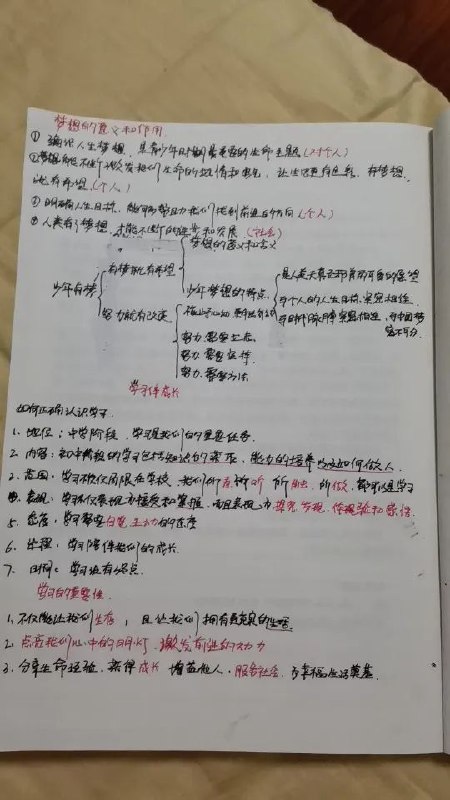 梦想的意义和作用
① 编织人生梦想，是青少年时期重要的生命主题（对个人）
②梦想能不断激发我们生命的热情和勇气，让生活更有色彩，有梦想，
就有希望（个人）
③ 明确人生目标，能够帮助我们找到前进的方向（个人）
④ 人类有了梦想，才能不断的进步和发展（社会）
梦想的意义和含义
有梦就有希望
少年梦想的特点
是人类天真无邪 美好可 的愿望
与个人的人生目标紧密相连
与时代脉搏紧密相连，与中国梦
密不可分
少年有梦
努力就有改变
努力，需要立志
努力，需要坚持
努力，需要方法
学习伴成长
如何正确认识学习
1、地位：中学阶段，学习是我们的重要任务
2、内容：初中阶段的学习包括知识的获取，能力的培养以及如何做人
3、范围：学习不仅仅局限在学校，我们所看 所听 所 所做，都可以是学习
4、表现：学习不仅表现为接受和掌握，而且表现为探究，发现，体验和感悟
5、态度：学习需要自觉，主动的态度
6、过程：学习陪伴我们的成长
7、时间：学习没有终点
学习的重要性
1、不仅能让我们生存，且让我们拥有更充实的生活
2、点亮我们心中的明灯，激发前进的动力
3、分享生命经验，获得成长 增益他人，服务社会，为幸福生活奠基